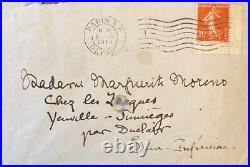 PARIS R.P.
DEPART
Madame Marguerite Moreno
Chez les Zacques
Yainville - Jumièges
par Duclair
Seine-Inférieure